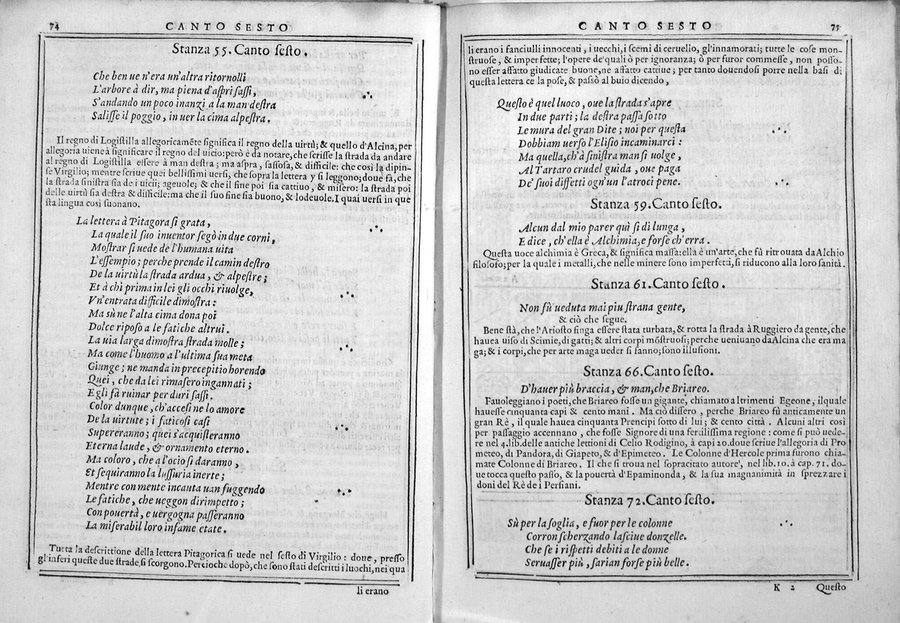 74 CANTO SESTO
Stanza 55. Canto sesto.
Che ben ue n'era un'altra ritornolli
L'arbore à dir, ma piena d'aspri sassi,
S'andando un poco inanzi a la man destra
Salisse il poggio, in uer la cima alpestra.
Il regno di Logistilla allegoricamẽte significa il regno della uirtù; & quello d'Alcina, per
allegoria uiene à significare il regno del uicio: però è da notare, che scrisse la strada da andare
al regno di Logistilla essere à man destra; ma aspra, sassosa, & difficile: che cosi la dipin-
se Virgilio; mentre scriue quei bellissimi uersi, che sopra la lettera y si leggono; doue fà, che
la strada sinistra sia de i uicii; ageuole; & che il fine poi sia cattiuo, & misero: la strada poi
delle uirtù sia destra & difficile: ma che il suo fine sia buono, & lodeuole. I quai uersi in que
sta lingua cosi suonano.
La lettera à Pitagora si grata,
La quale il suo inuentor segò in due corni,
Mostrar si uede de l'humana uita
L'essempio; perche prende il camin destro
De la uirtù la strada ardua, & alpestre;
Et à chi prima in lei gli occhi riuolge,
Vn'entrata difficile dimostra:
Ma sù ne l'alta cima dona poi
Dolce riposo a le fatiche altrui.
La uia larga dimostra strada molle;
Ma come l'huomo a l'ultima sua meta
Giunge; ne manda in precepitio horendo
Quei, che da lei rimasero ingannati;
E gli fà ruinar per duri sassi.
Color dunque, ch'accesi ne lo amore
De la uirtute; i faticosi casi
Supereranno; quei s'acquisteranno
Eterna laude, & ornamento eterno.
Ma coloro, che a l'ocio si daranno,
Et sequiranno la lussuria inerte;
Mentre con mente incauta uan fuggendo
Le fatiche, che ueggon dirimpetto;
Con pouertà, e uergogna passeranno
La miserabil loro infame etate.
Tutta la descrittione della lettera Pitagorica si uede nel sesto di Virgilio: doue, presso
gl'inferi queste due strade, si scorgono. Percioche dopò, che sono stati descritti i luochi, nei qua
li erano
CANTO SESTO 75
li erano i fanciulli innocenti, i uecchi, i scemi di ceruello, gl'innamorati; tutte le cose mon-
struose, & imperfette; l'opere de'quali ò per ignoranza; ò per furor commesse, non posso-
no esser affatto giudicate buone, ne affatto cattiue; per tanto douendosi porre nella basi di
questa lettera ce la pose, & passiò al buio dicendo,
Questo è quel luoco, oue la strada s'apre
In due parti; la destra passa sotto
Le mura del gran Dite; noi per questa
Dobbiam uerso l'Elisio incaminarci:
Ma quella, ch'à sinistra man si uolge,
Al Tartaro crudel guida, oue paga
De' suoi diffetti ogn'un l'atroci pene.
Stanza 59. Canto sesto.
Alcun dal mio parer quì si dilunga,
E dice, ch'ella è Alchimia; e forse ch'erra.
Questa uoce alchimia è Greca, & significa massa: ella è un'arte, che fù ritrouata da Alchio
filosofo; per la quale i metalli, che nelle minere sono imperfetti, si riducono alla loro sanità.
Stanza 61. Canto sesto.
Non fù ueduta mai piu strana gente,
& ciò che segue.
Bene stà, che l'Ariosto finga essere stata turbata, & rotta la strada à Ruggiero da gente, che
hauea uiso di Scimie, di gatti; & altri corpi mõstruosi; perche ueniuano da Alcina che era ma
ga; & i corpi, che per arte maga ueder si fanno; sono illusioni.
Stanza 66. Canto sesto.
D'hauer più braccia, & man, che Briareo.
Fauoleggiano i poeti, che Briareo fosse un gigante, chiamato altrimenti Egeone, il quale
hauesse cinquanta capi & cento mani. Ma ciò dissero, perche Briareo fù anticamente un
gran Rè, il quale hauea cinquanta Prencipi sotto di lui; & cento città. Alcuni altri cosi
per passaggio accennano, che fosse Signore di una fertilissima regione: come si può uede-
re nel 4. lib. delle antiche lettioni di Celio Rodigino, à capi 20. doue scriue l'allegoria di Pro
meteo, di Pandora, di Giapeto, & d'Epimeteo. Le Colonne d'Hercole prima furono chia-
mate Colonne di Briareo. Il che si troua nel sopracitato autore, nel lib. 10. à cap. 71. do-
ue tocca questo passo, & la pouertà d'Epaminonda, & la sua magnanimità in sprezzare i
doni del Rè de i Persiani.
Stanza 72. Canto sesto.
Sù per la soglia, e fuor per le colonne
Corron scherzando lasciue donzelle.
Che se i rispetti debiti a le donne
Seruasser più, sarian forse più belle.
K 2 Questo